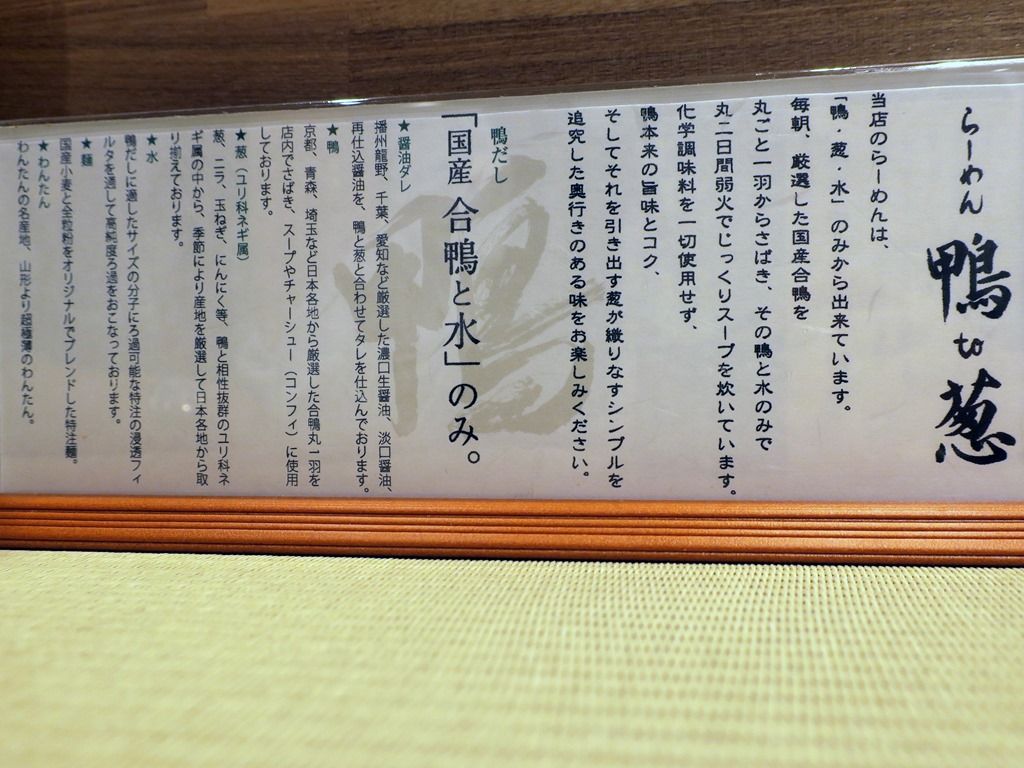 らーめん 鴨 to 葱
当店のらーめんは、
「鴨・葱・水」のみから出来ています。
毎朝、厳選した国産合鴨を
丸ごと一羽からさばき、その鴨と水のみで
丸二日間弱火でじっくりスープを炊いています。
化学調味料を一切使用せず、
鴨本来の旨味とコク、
そしてそれを引き出す葱が織りなすシンプルを
追究した奥行きのある味をお楽しみください。
鴨だし
「国産 合鴨と水」のみ。
★醤油ダレ
播州龍野、千葉、愛知など厳選した濃口生醤油、淡口醤油、
再仕込醤油を、鴨と葱と合わせてタレを仕込んでおります。
★鴨
京都、青森、埼玉など日本各地から厳選した合鴨丸一羽を
店内でさばき、スープやチャーシュー（コンフィ）に使用
しております。
★葱（ユリ科ネギ属）
葱、ニラ、玉ねぎ、にんにく等、鴨と相性抜群のユリ科ネ
ギ属の中から、季節により産地を厳選して日本各地から取
り揃えております。
★水
鴨だしに適したサイズの分子にろ過可能な特注の浸透フィ
ルタを通して高純度ろ過をおこなっております。
★麺
国産小麦と全粒粉をオリジナルでブレンドした特注麺。
★わんたん
わんたんの名産地、山形より超極薄のわんたん。
鴨